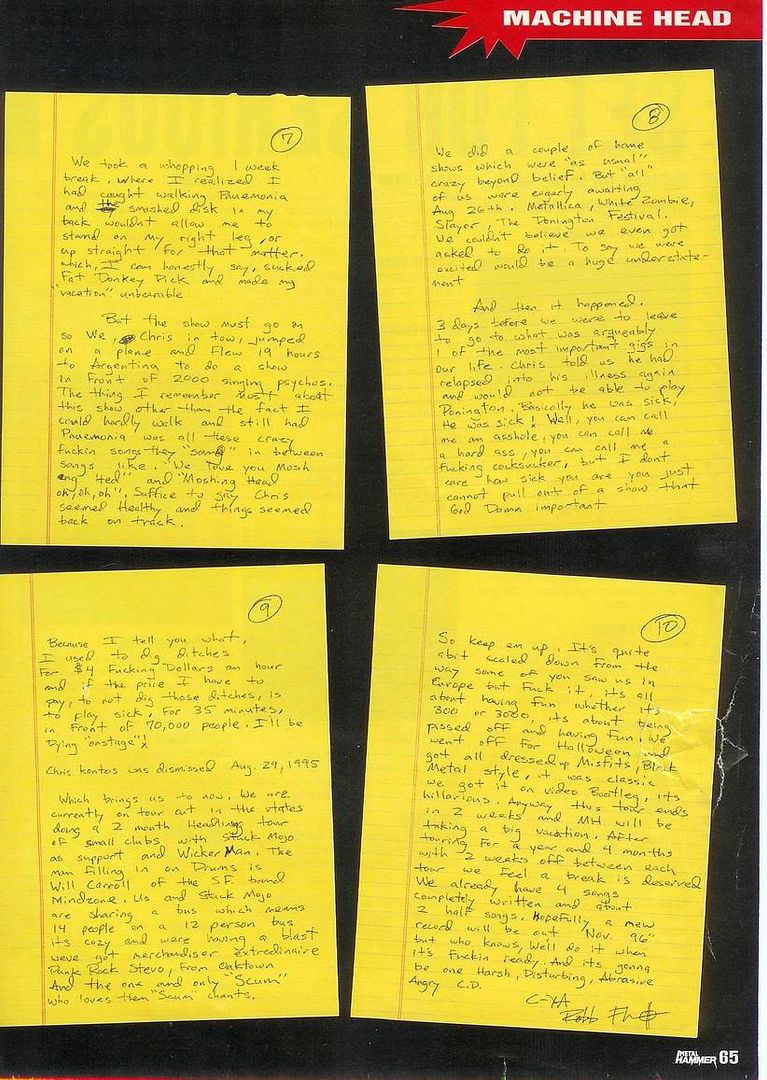 MACHINE HEAD
7
We took a whopping 1 week
break. Where I realized I
had caught walking Pnuemonia
and the smashed disk in my
back wouldnt allow me to
stand on my right leg, or
up straight for that matter.
which, I can honestly say, sucked
Fat Donkey Dick and made my
"vacation" unbearable.
But the show must go on
so We, Chris in tow, jumped
on a plane and Flew 19 hours
to Argentina to do a show
in Front of 2000 singing psychos.
The thing I remember most about
this show other than the fact I
could hardly walk and still had
Pnuemonia was all these crazy
fuckin songs they "sang" in between
songs like. "We love you Mosh
eng 4ed" and "Moshing Head
oh, oh, oh". Suffice to say Chris
seemed Healthy and things seemed
back on track.
8
We did a couple of home
shows which were "as usual"
crazy beyond belief. But "all"
of us were eagerly awaiting
Aug 26th. Metallica, White Zombie,
Slayer, The Donington Festival.
We couldn't believe we even got
asked to do it. To say we were
excited would be a huge understate-
ment
And then it happened.
3 days before we were to leave
to go to what was argueably
1 of the most important gigs in
our life. Chris told us he had
relapsed into his illness again
and would not be able to play
Donington. Basically he was sick,
He was sick! Well, you can call
me an asshole, you can call me
a hard ass, you can call me a
fucking cocksucker, but I dont
care how sick you are you just
cannot pull out of a show that
God Damn important
9
Because I tell you what,
I used to dig ditches
For $4 Fucking Dollars an hour
and if the price I have to
pay, to not dig those ditches, is
to play sick, for 35 minutes,
in Front of 70,000 people. I'll be
Dying "onstage"!
Chris kontos was dismissed Aug. 29, 1995
Which brings us to now. We are
currently on tour out in the states
doing a 2 month Headlining tour
of small clubs with Stuck Mojo
as support and Wicker Man. The
man filling in on Drums is
Will Carroll of the S.F. band
Mindzone. Us and Stuck Mojo
are sharing a bus which means
14 people on a 12 person bus
its cozy and were having a blast
weve got merchandiser extrodinaire
Punk Rock Stevo, from Oaktown
And the one and only "Scum"
who loves them "Scum" chants.
10
So keep em up. It's quite
abit scaled down from the
way some of you saw us in
Europe but Fuck it, its all
about having Fun whether its
300 or 3000, its about being
pissed off and having Fun. We
went off for Halloween and
got all dressed up Misfits, Black
Metal style, it was classic
we got it on video Bootleg, its
hillarious. Anyway this tour ends
in 2 weeks and MH will be
taking a big vacation. After
touring For a year and 4 months
with 2 weeks off between each
tour we feel a break is deserved
We already have 4 songs
completely written and about
2 half songs. Hopefully a new
record will be out "Nov. 96"
but who knows, We'll do it when
it's Fuckin ready. And its gonna
be one Harsh, Disturbing, Abrasive
Angry C.D.
C-YA
Robb
METAL HAMMER 65